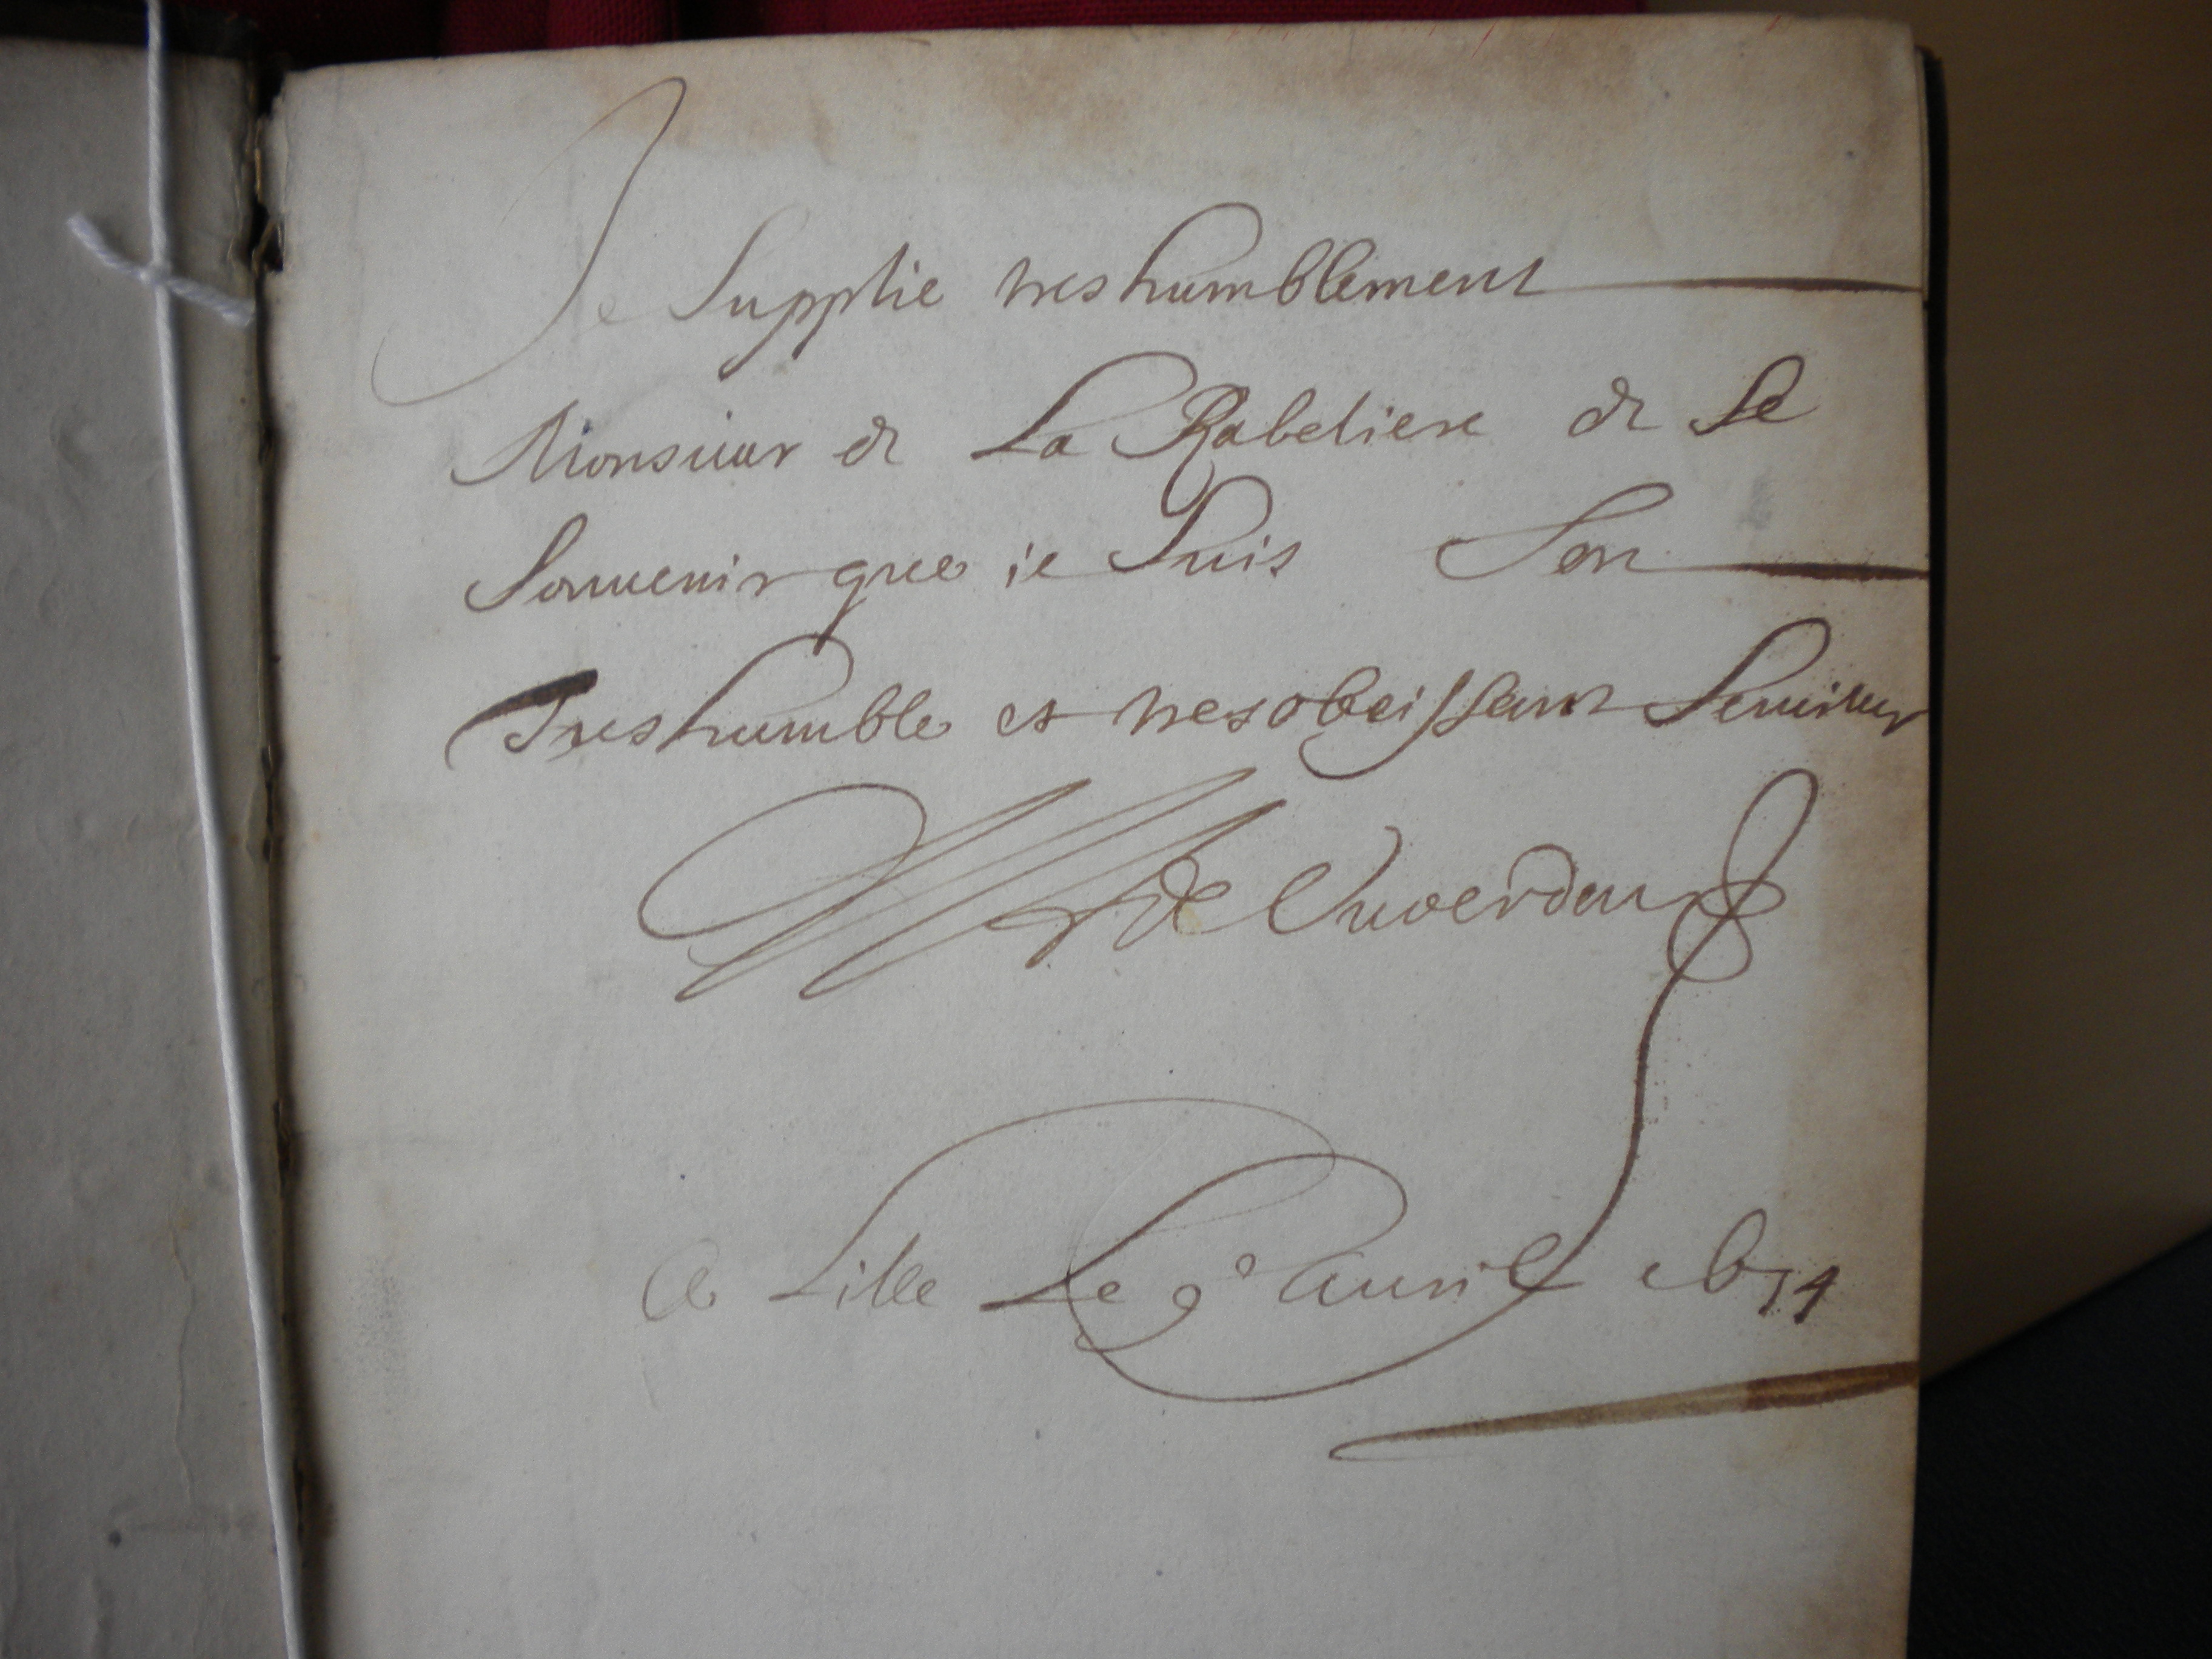 Je Supplie treshumblement
Monsieur de La Rabeliere de Se
Souuenir que ie Suis Son
Treshumble et tresobeissant Seruiteur
de
A Lille Le 9e Auril 1674